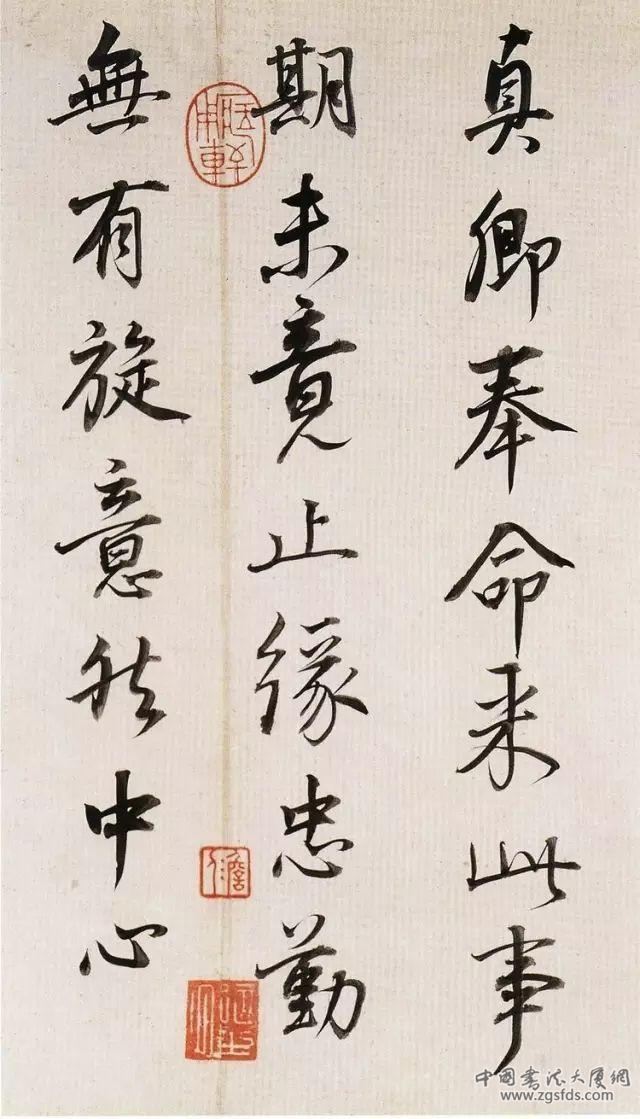 真卿奉命来此事
期未竟止缘忠勤
無有旋意然中心
中国书法大厦網
www.zgsfds.com